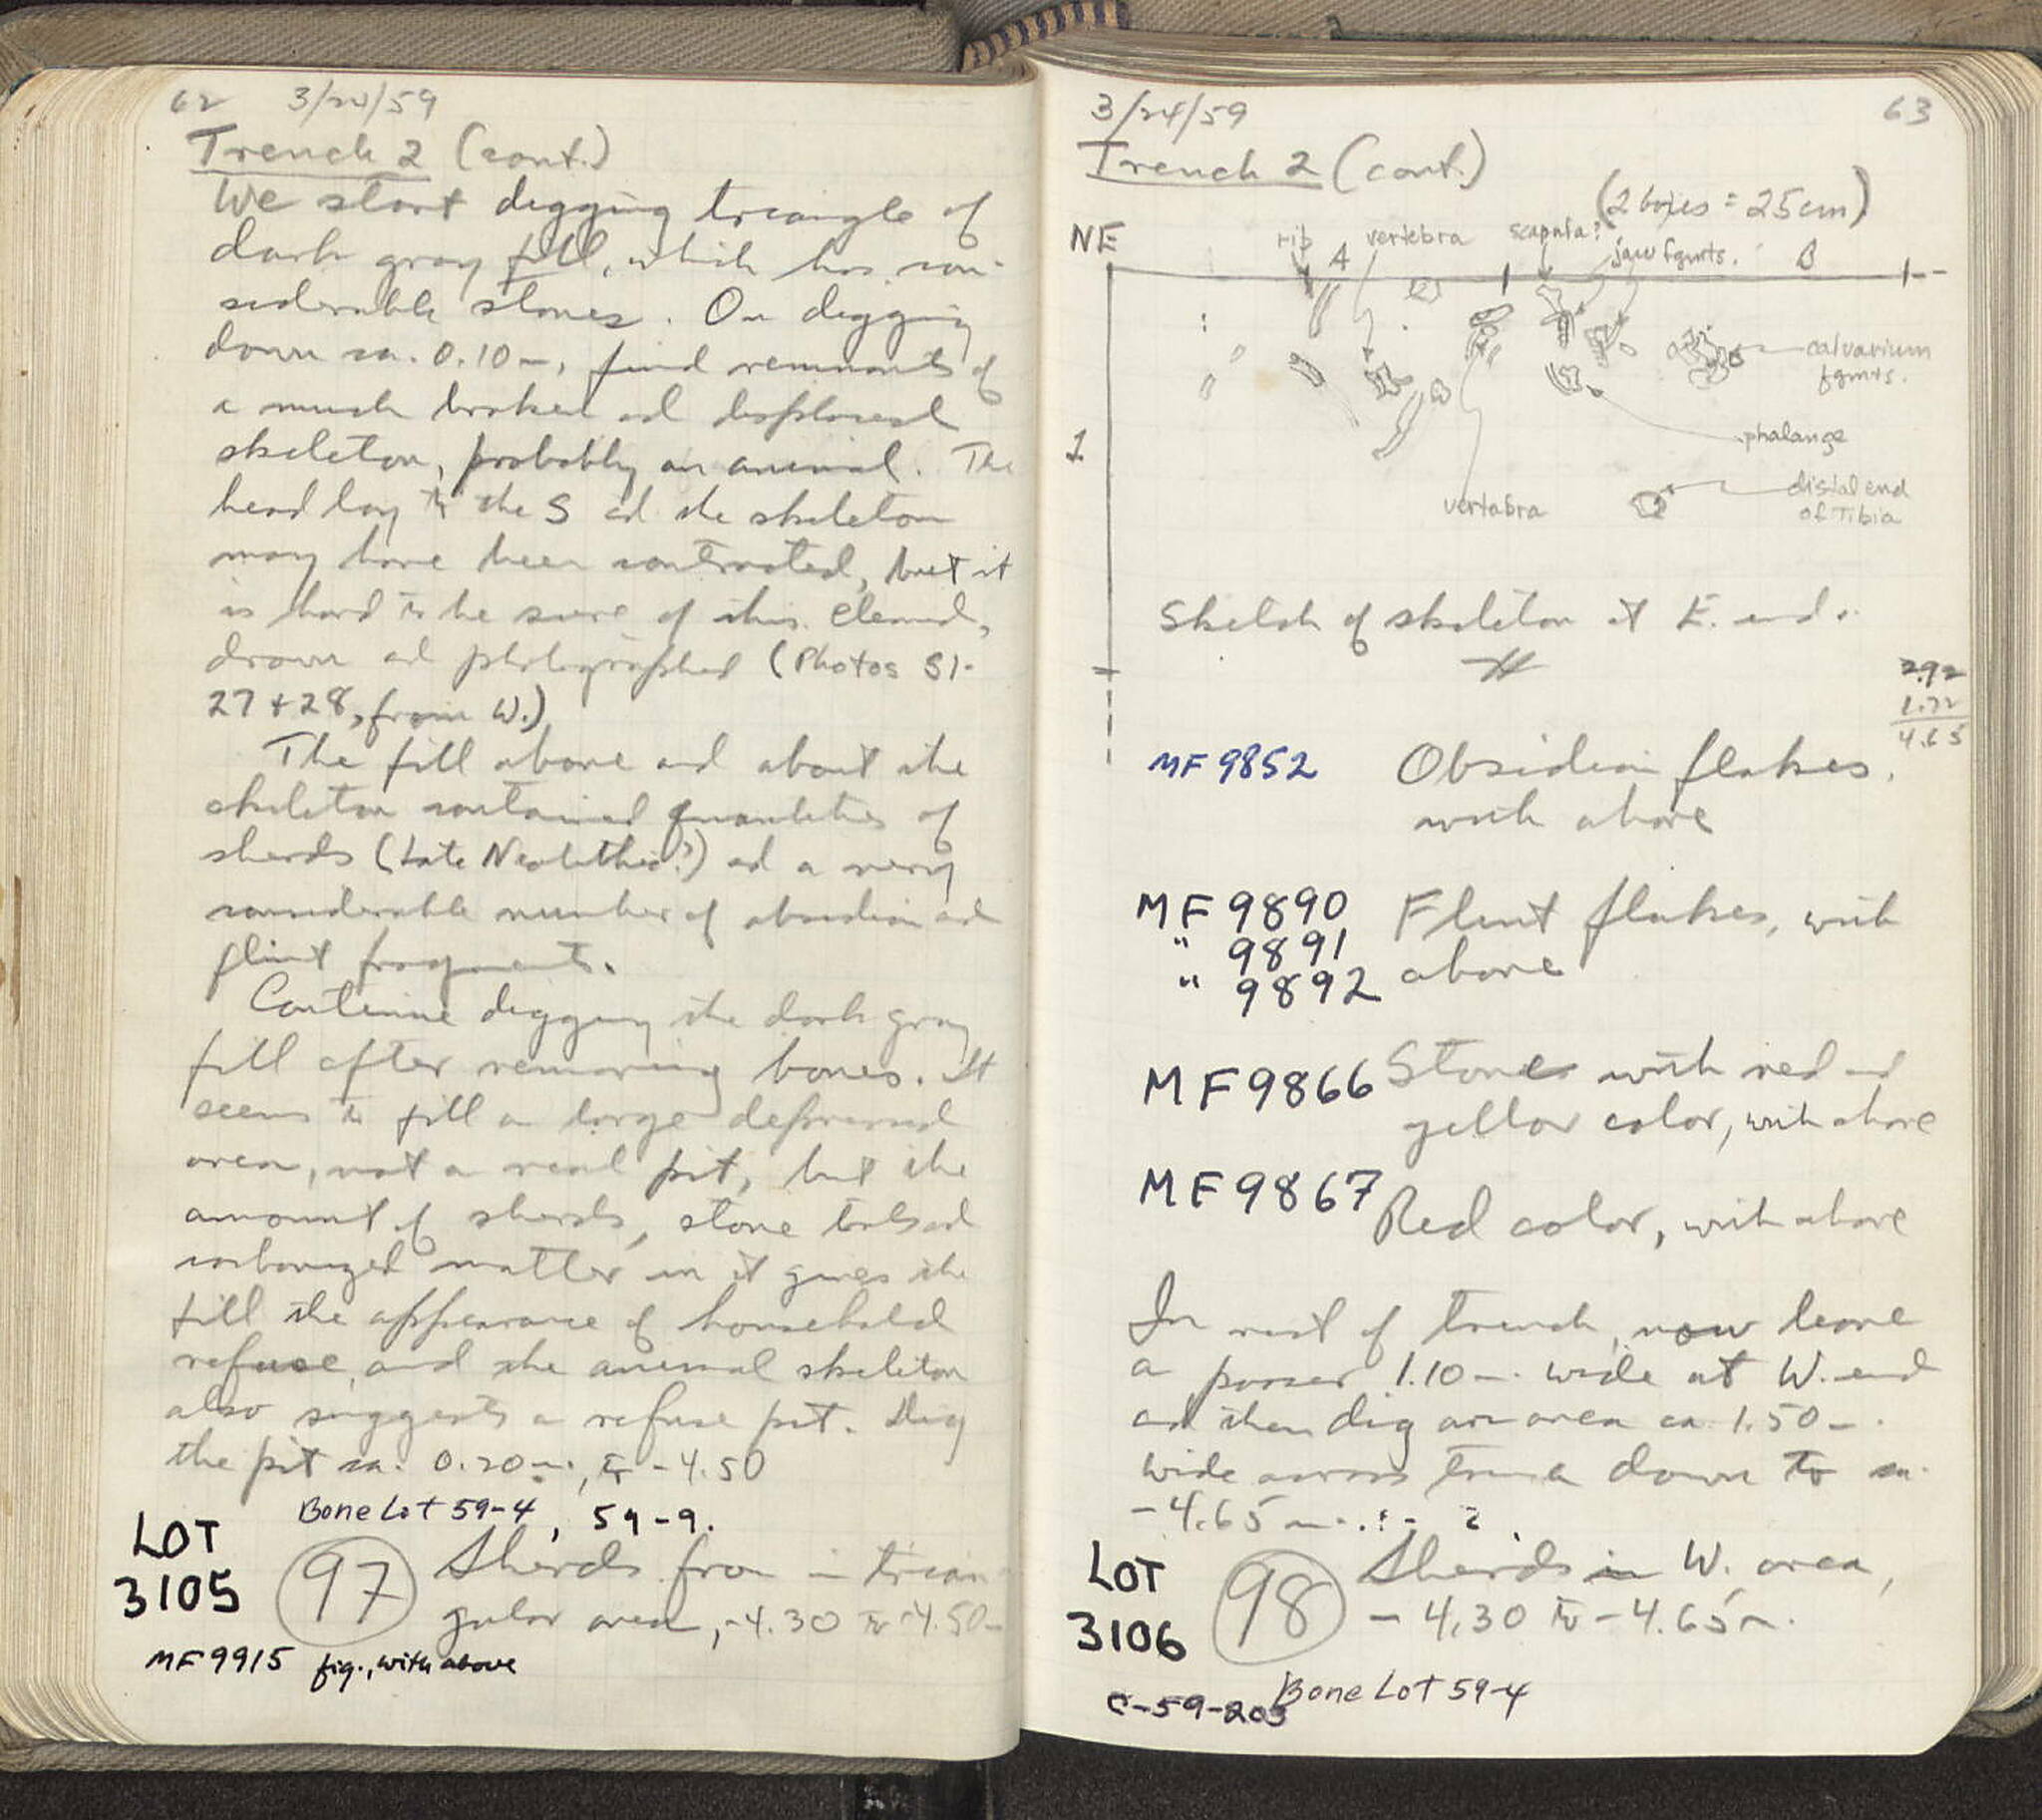 62 3/24/59
Trench 2 (cont.)
We start digging triangle of
dark gray fill, which has con-
siderable stones. On digging
down ca. 0.10 m, find remnants of
a much broken and displaced
skeleton, probably an animal. The
head lay to the S and the skeleton
may have been contracted, but it
is hard to be sure of this. Cleaned,
drawn and photographed (Photos 31-
27+28, from W.)
The fill above and about the
skeleton contained quantities of
sherds (Late Neolithic?) and a very
considerable number of obsidian and
flint fragments.
Continue digging the dark gray
fill after removing bones. It
seems to fill a large depressed
area, not a real pit, but the
amount of sherds, stone tools and
carbonized matter in it gives the
fill the appearance of household
refuse, and the animal skeleton
also suggests a refuse pit. Dig
the pit ca. 0.20 m., to -4.50
Bone Lot 59-4, 59-9.
LOT
3105
97 Sherds from in trian-
gular area, -4.30 to -4.50 m
MF 9915 fig., with above
3/24/59 63
Trench 2 (cont.)
(2 boxes = 25cm)
NE rib A vertebra scapula? jaw fgmts. B
calvarium
fgmts.
phalange
1
vertabra
distal end
of Tibia
Sketch of skeleton at E. end.
2.92
1.72
4.65
MF 9852 Obsidian flakes,
with above
MF 9890 Flint flakes, with
" 9891 above
" 9892
MF9866 Stones with red and
yellow color, with above
MF9867 Red color, with above
In rest of trench, now leave
a passer 1.10 m. wide at W. end
and then dig an area ca. 1.50 m.
wide across trench down to ca.
-4.65 m.
LOT
3106
98 Sherds in W. area,
-4.30 to -4.65 m.
Bone Lot 59-4
C-59-203